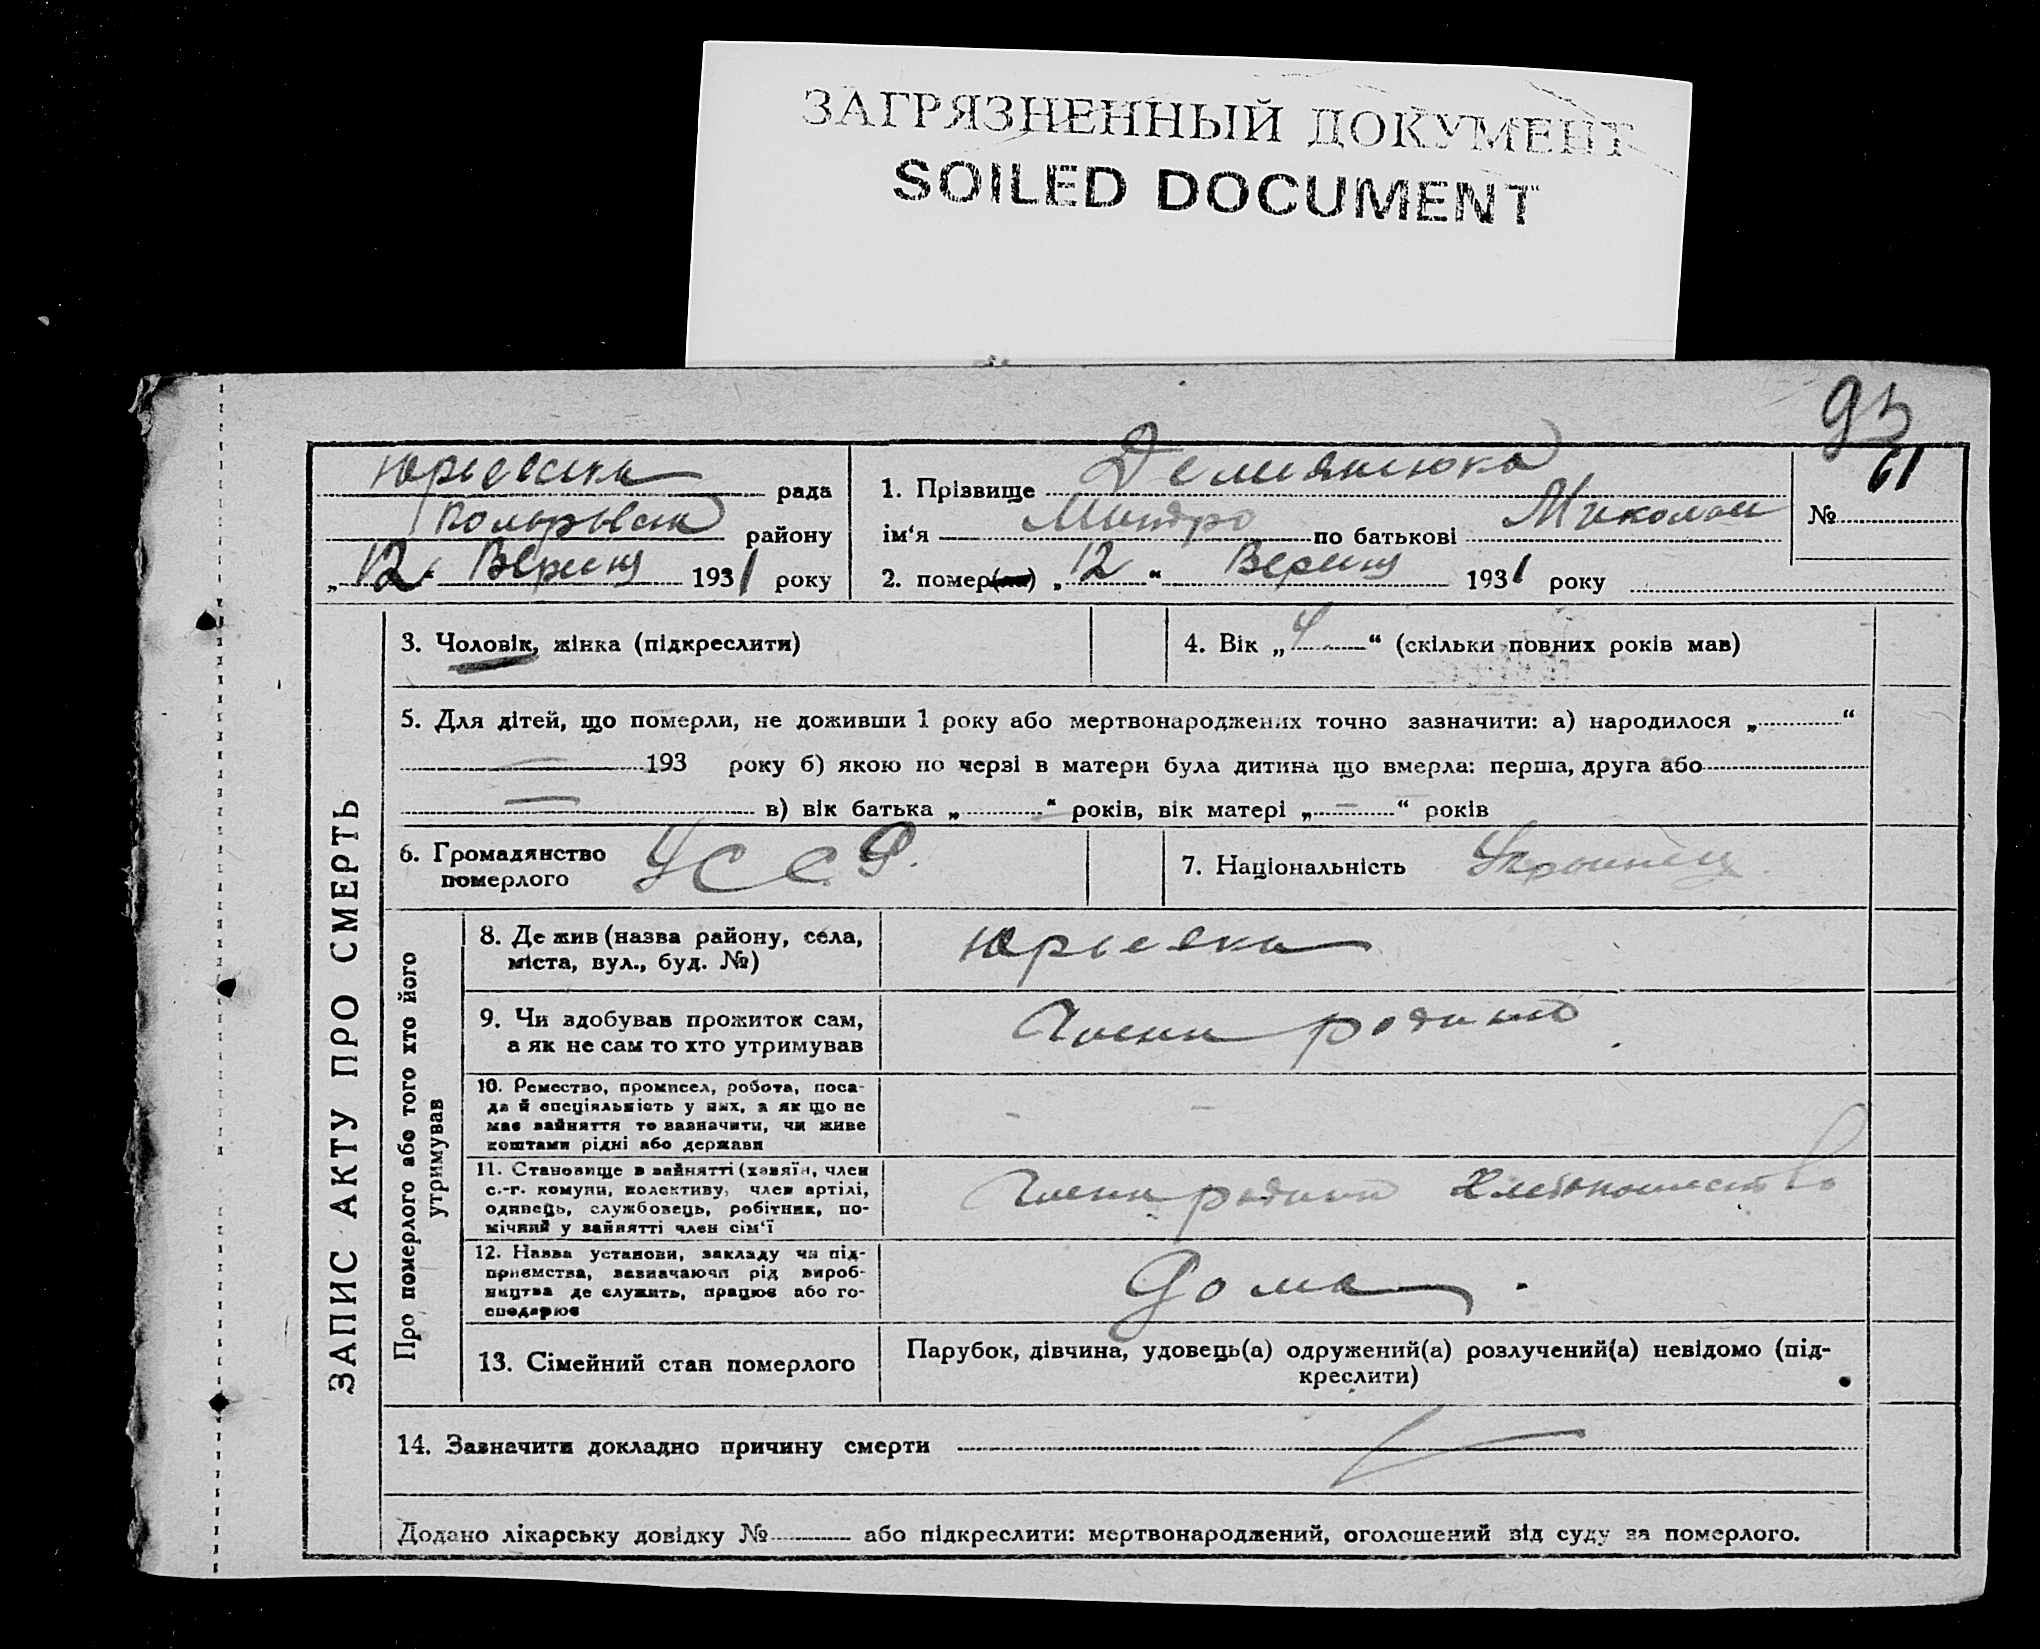 ЗАГРЯЗНЕННЫЙ ДОКУМЕНТ
SOILED DOCUMENT
93
61
Юрьевска рада
району
„12“ Верцня 1931 року
1. Прізвище Демиянюка
ім‘я по батькові Миколаи
№
2. помер(ла) „12“ Верцня 1931 року
ЗАПИС АКТУ ПРО СМЕРТЬ
3. Чоловік, жінка (підкреслити)
4. Вік „4“ (скільки повних років мав)
5. Для дітей, що померли, не доживши 1 року або мертвонароджених точно зазначити: а) народилося „ “
193 року б) якою по черзі в матери була дитина що вмерла: перша, друга або
в) вік батька „ “ років, вік матері „ “ років
6. Громадянство
померлого
УССР.
7. Національність Украинец
Про померлого або того хто його
утримував
8. Де жив (назва району, села,
міста, вул., буд. №)
Юрьевка
9. Чи здобував прожиток сам,
а як не сам то хто утримував
Члени родини
10. Ремество, промисел, робота, поса-
да й спеціяльність у них, а як що не
має зайняття то вазначити, чи живе
коштами рідні або держави
11. Становище в зайнятті (хазяїн, член
с.-г. комуни, колективу, член артілі,
одинець, службовець, робітник, по-
мічний у зайнятті член сім‘ї
Члени родини
12. Назва установи, закладу чи під-
приємства, вазначаючи рід вироб-
ництва де служить, працює або го-
сподарює
Дома.
13. Сімейний стан померлого
Парубок, дівчина, удовець(а) одружений(а) розлучений(а) невідомо (під-
креслити)
14. Зазначити докладно причину смерти
Додано лікарську довідку № або підкреслити: мертвонароджений, оголошений від суду за померлого.